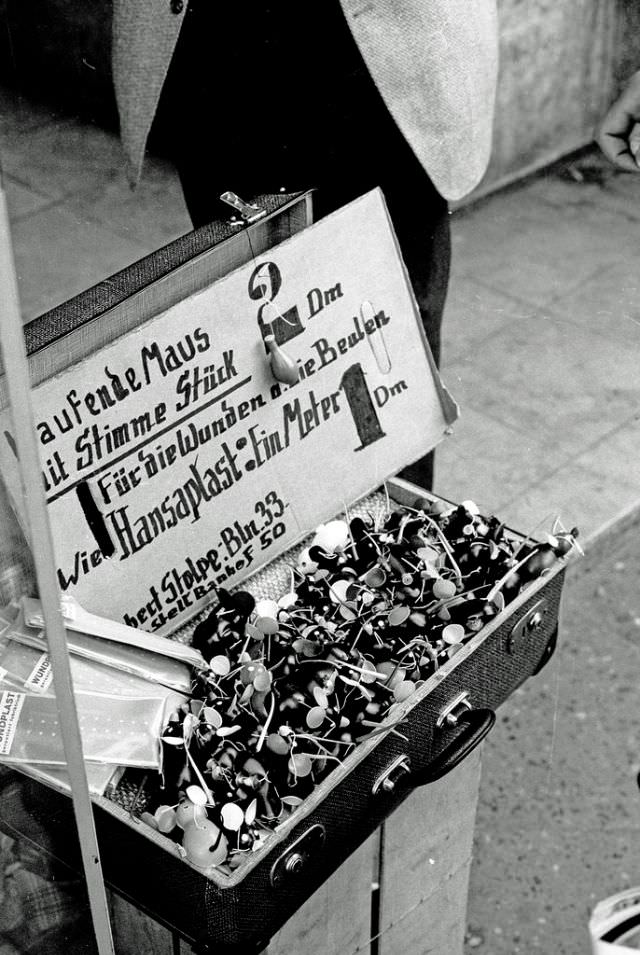 aufende Maus
mit Stimme Stück 2 Dm
Für die Wunden die Beulen
Wie Hansaplast: Ein Meter 1 Dm
bert Stolpe: Bln. 33.
Stell Banhof 50
WUND
UNDPLAST